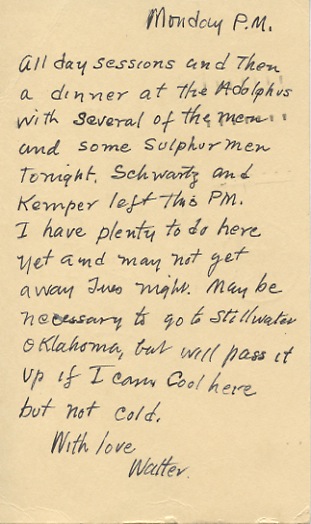 Monday P.M.
All day sessions and then
a dinner at the Adolphus
with several of the men
and some Sulphur men
Tonight. Schwartz and
Kemper left this PM.
I have plenty to do here
yet and may not get
away Tues night. May be
necessary to go to Stillwater
Oklahoma, but will pass it
up if I can. Cool here
but not cold.
With love
Walter.